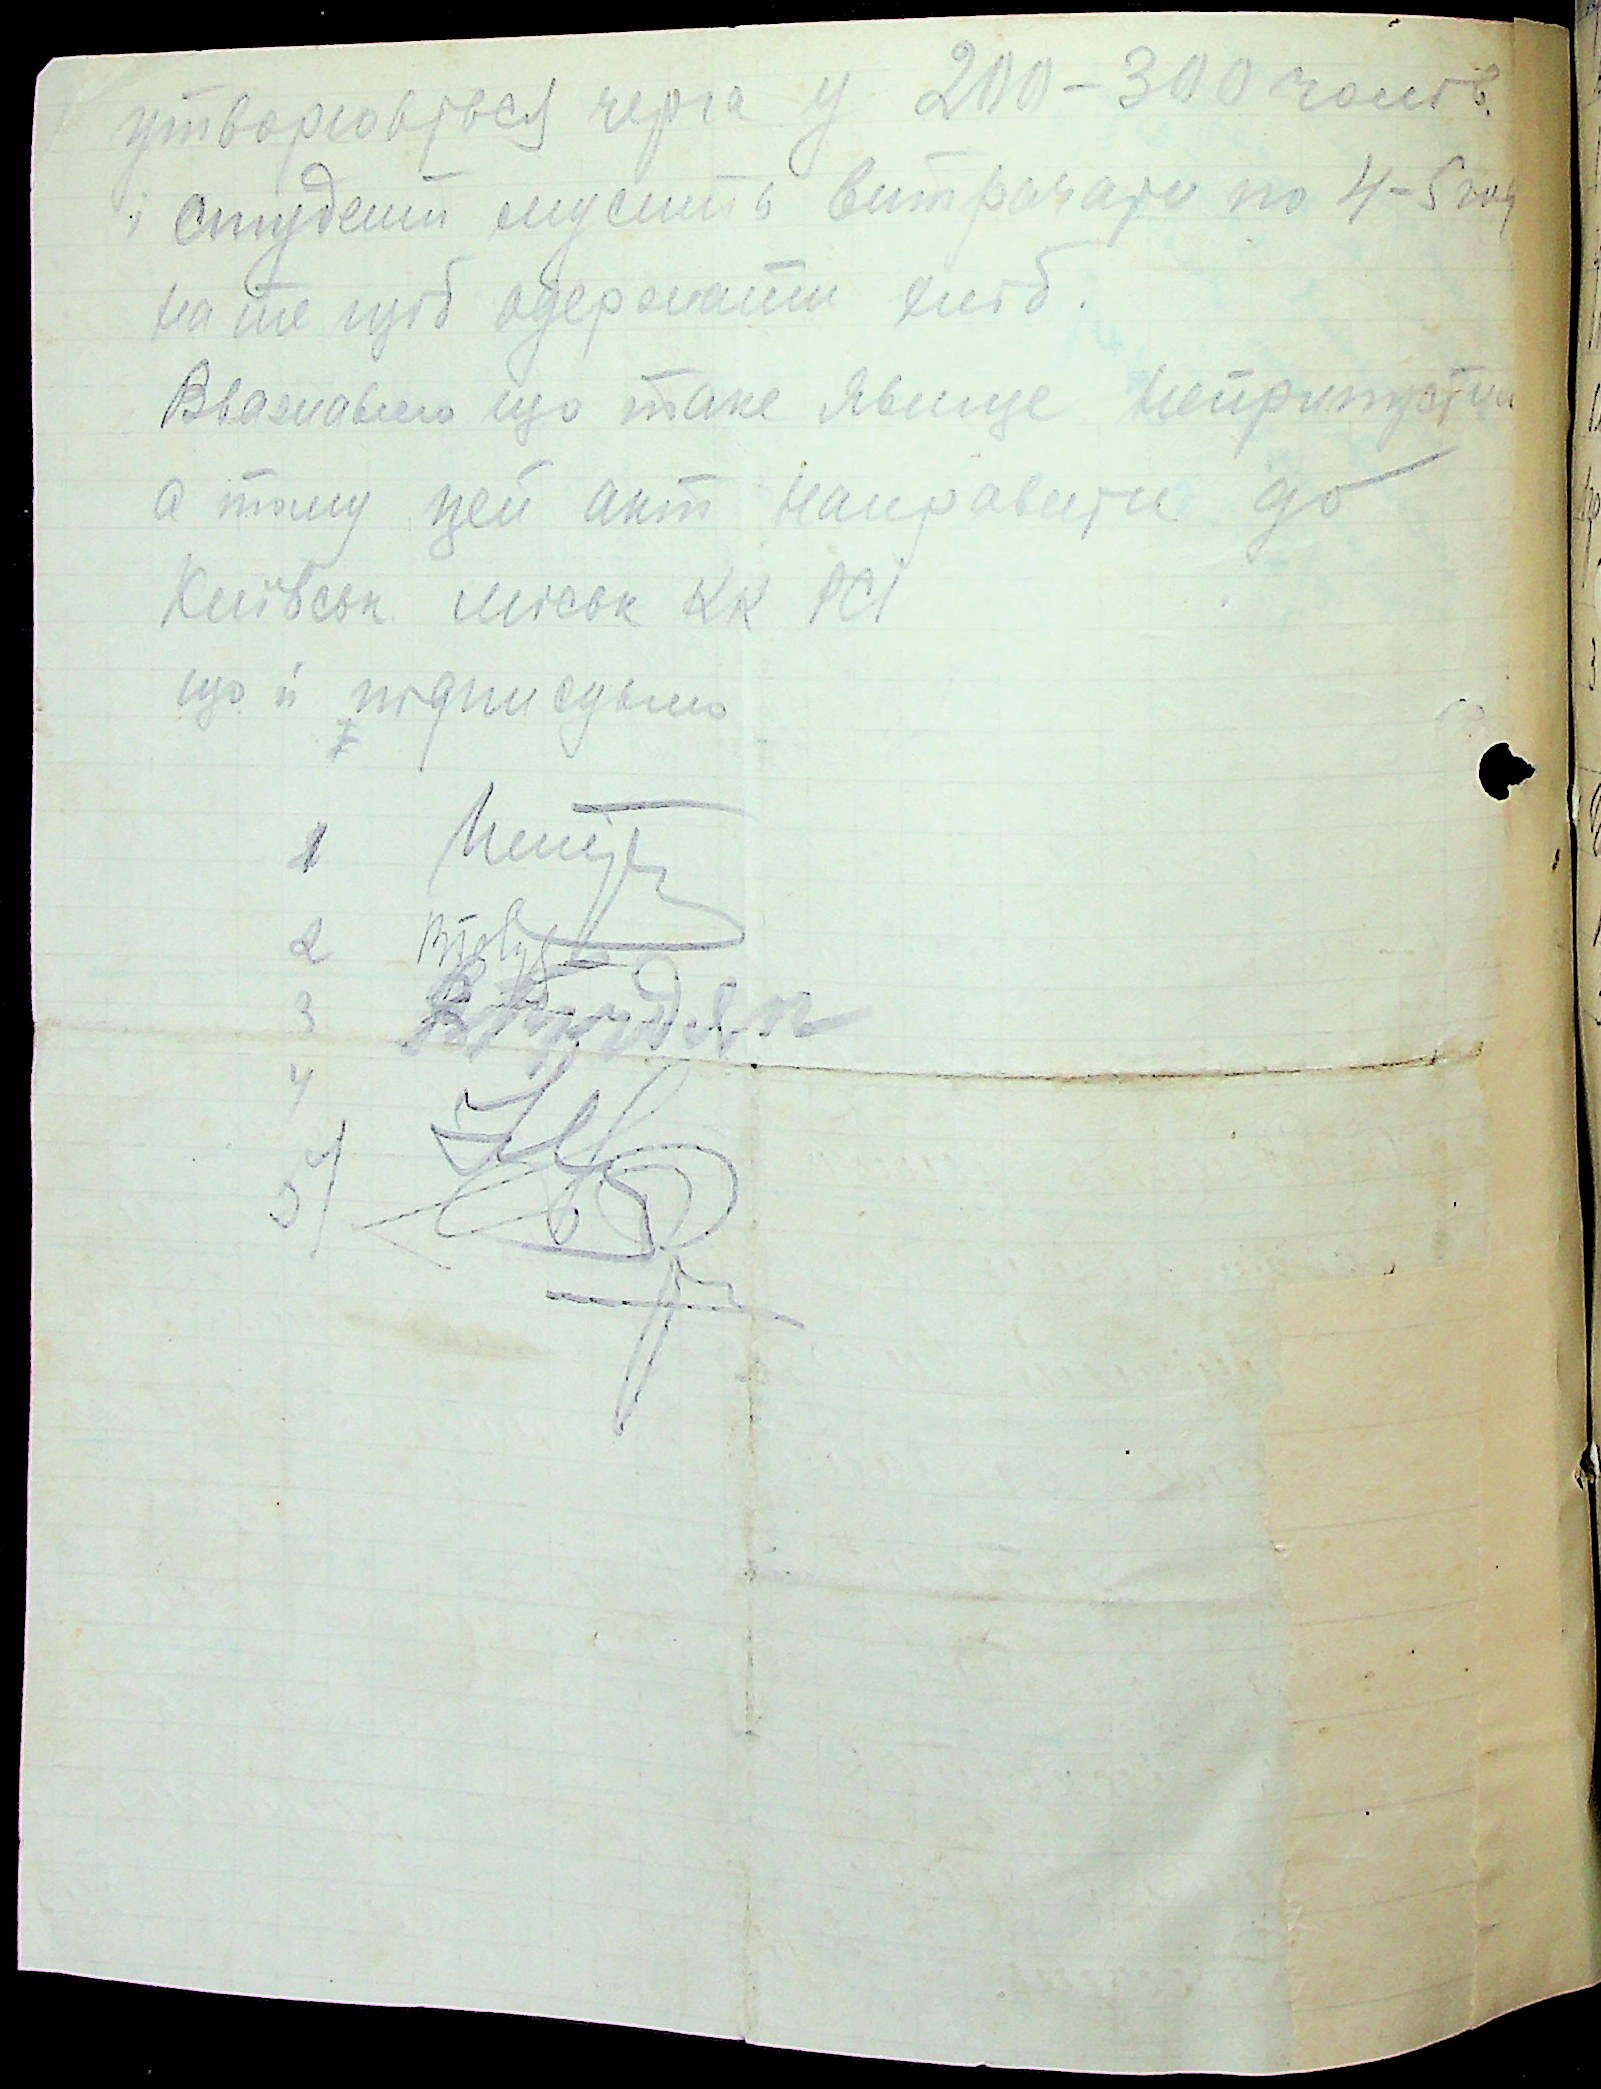 утворюється черга у 200-300 чолів.
і студент мусить витрачати по 4-5 год
на те щоб одержати хліб.
Вважаємо що таке явище неприпустим
а тому цей акт направити до
Київськ. міськ КК РСІ
що й підписуємо
1
2
3
4
5/